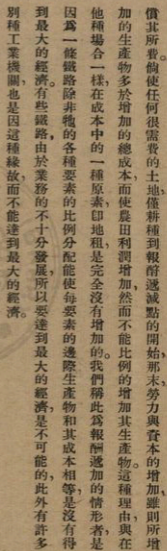 償其所費。倘使任何很需費的土地僅耕種到報酬遞減點的開始，那末，勞力與資本的增加雖則所
加的生產物多於增加的總成本，而使農田利潤增加，然而不能比例的增加其生產物。這種理由與在
他種場合一樣在成本中的一種原素，卽地租，是完全沒有增加的。我們稱此爲報酬遞加的情形者，是
因爲一條鐵路除非牠的各種要素的比例分配能使每要素的邊際生產物和其成本相等是沒有得
到最大的經濟。有些鐵路，由於業務的不十分發展，所以要達到最大的經濟，是不可能的，此外有許多
別種工業機關，也是因這種緣故而不能達到最大的經濟。